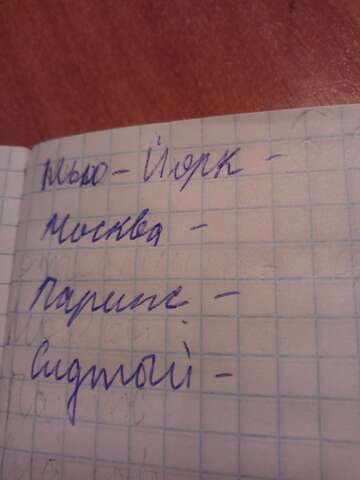 Нью-Йорк -
Москва -
Париж -
Сидтый -